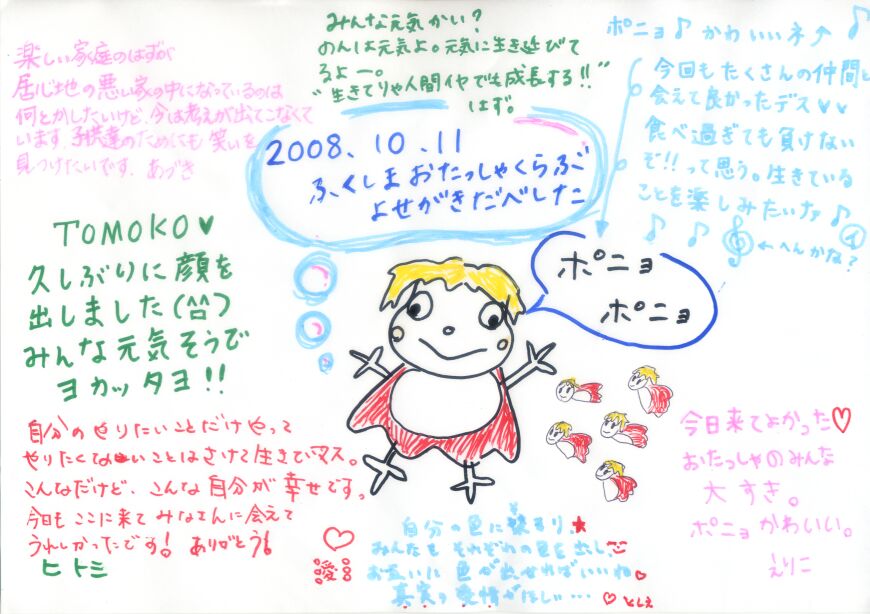 みんな元気かい？
のんは元気よ。元気に生き延びて
るよー。
"生きてりゃ人間イヤでも成長する!!"
はず。
ポニョ♪かわいいネ♪
楽しい家庭のはずが
居心地の悪い家の中になっているのは
何とかしたいけど、今は考えが出てこなくて
います。子供達のためにも笑いを
見つけたいです。あづき
今回もたくさんの仲間と
会えて良かったデス♥♥
食べ過ぎても負けない
ぞ!!って思う。生きている
ことを楽しみたいな♪
←へんかな？
2008.10.11
ふくしまおたっしゃくらぶ
よせがきだべした
TOMOKO♥
久しぶりに顔を
出しました(^^)
みんな元気そうで
ヨカッタヨ!!
ポニョ
ポニョ
自分のやりたいことだけやって
やりたくないことはさけて生きてマス。
こんなだけど、こんな自分が幸せです。
今日もここに来てみなさんに会えて
うれしかったです! ありがとう!
ヒトミ
愛
今日来てよかった♡
おたっしゃのみんな
大すき。
ポニョかわいい。
えりこ
自分の色に染まり★
みんなもそれぞれの色を出し
お互いに色が出せればいいね♥
真実の愛情がほしい…
♡としえ